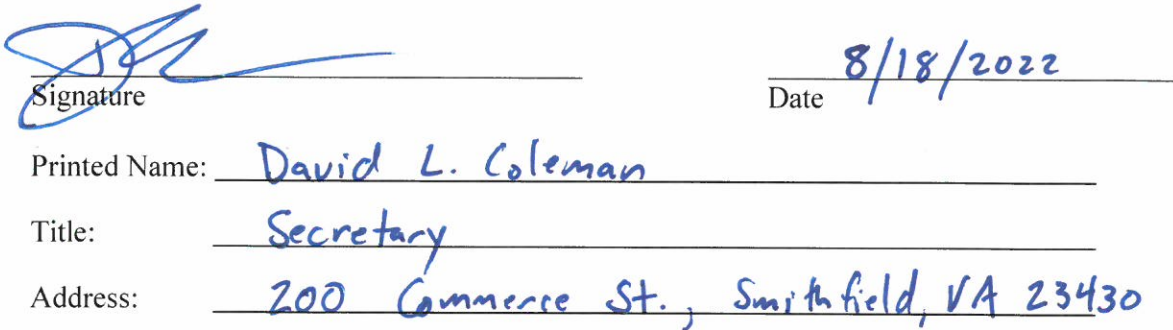 8/18/2022
Signature Date
Printed Name: David L. Coleman
Title: Secretary
Address: 200 Commerce St., Smithfield, VA 23430